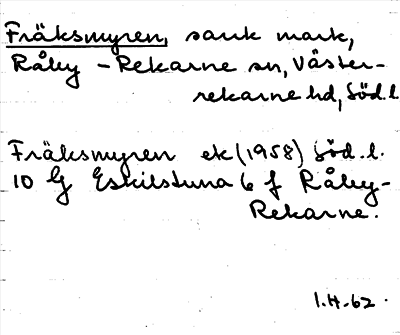 Fräksmyren, sank mark,
Råby-Rekarne sn, Väster-
rekarne hd, Söd.l.
Fräksmyren ek (1958) Söd.l.
10 G Eskilstuna 6 f Råby-
Rekarne.
I.H.-62.